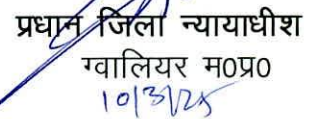 प्रधान जिला न्यायाधीश
ग्वालियर म0प्र0
10/3/25